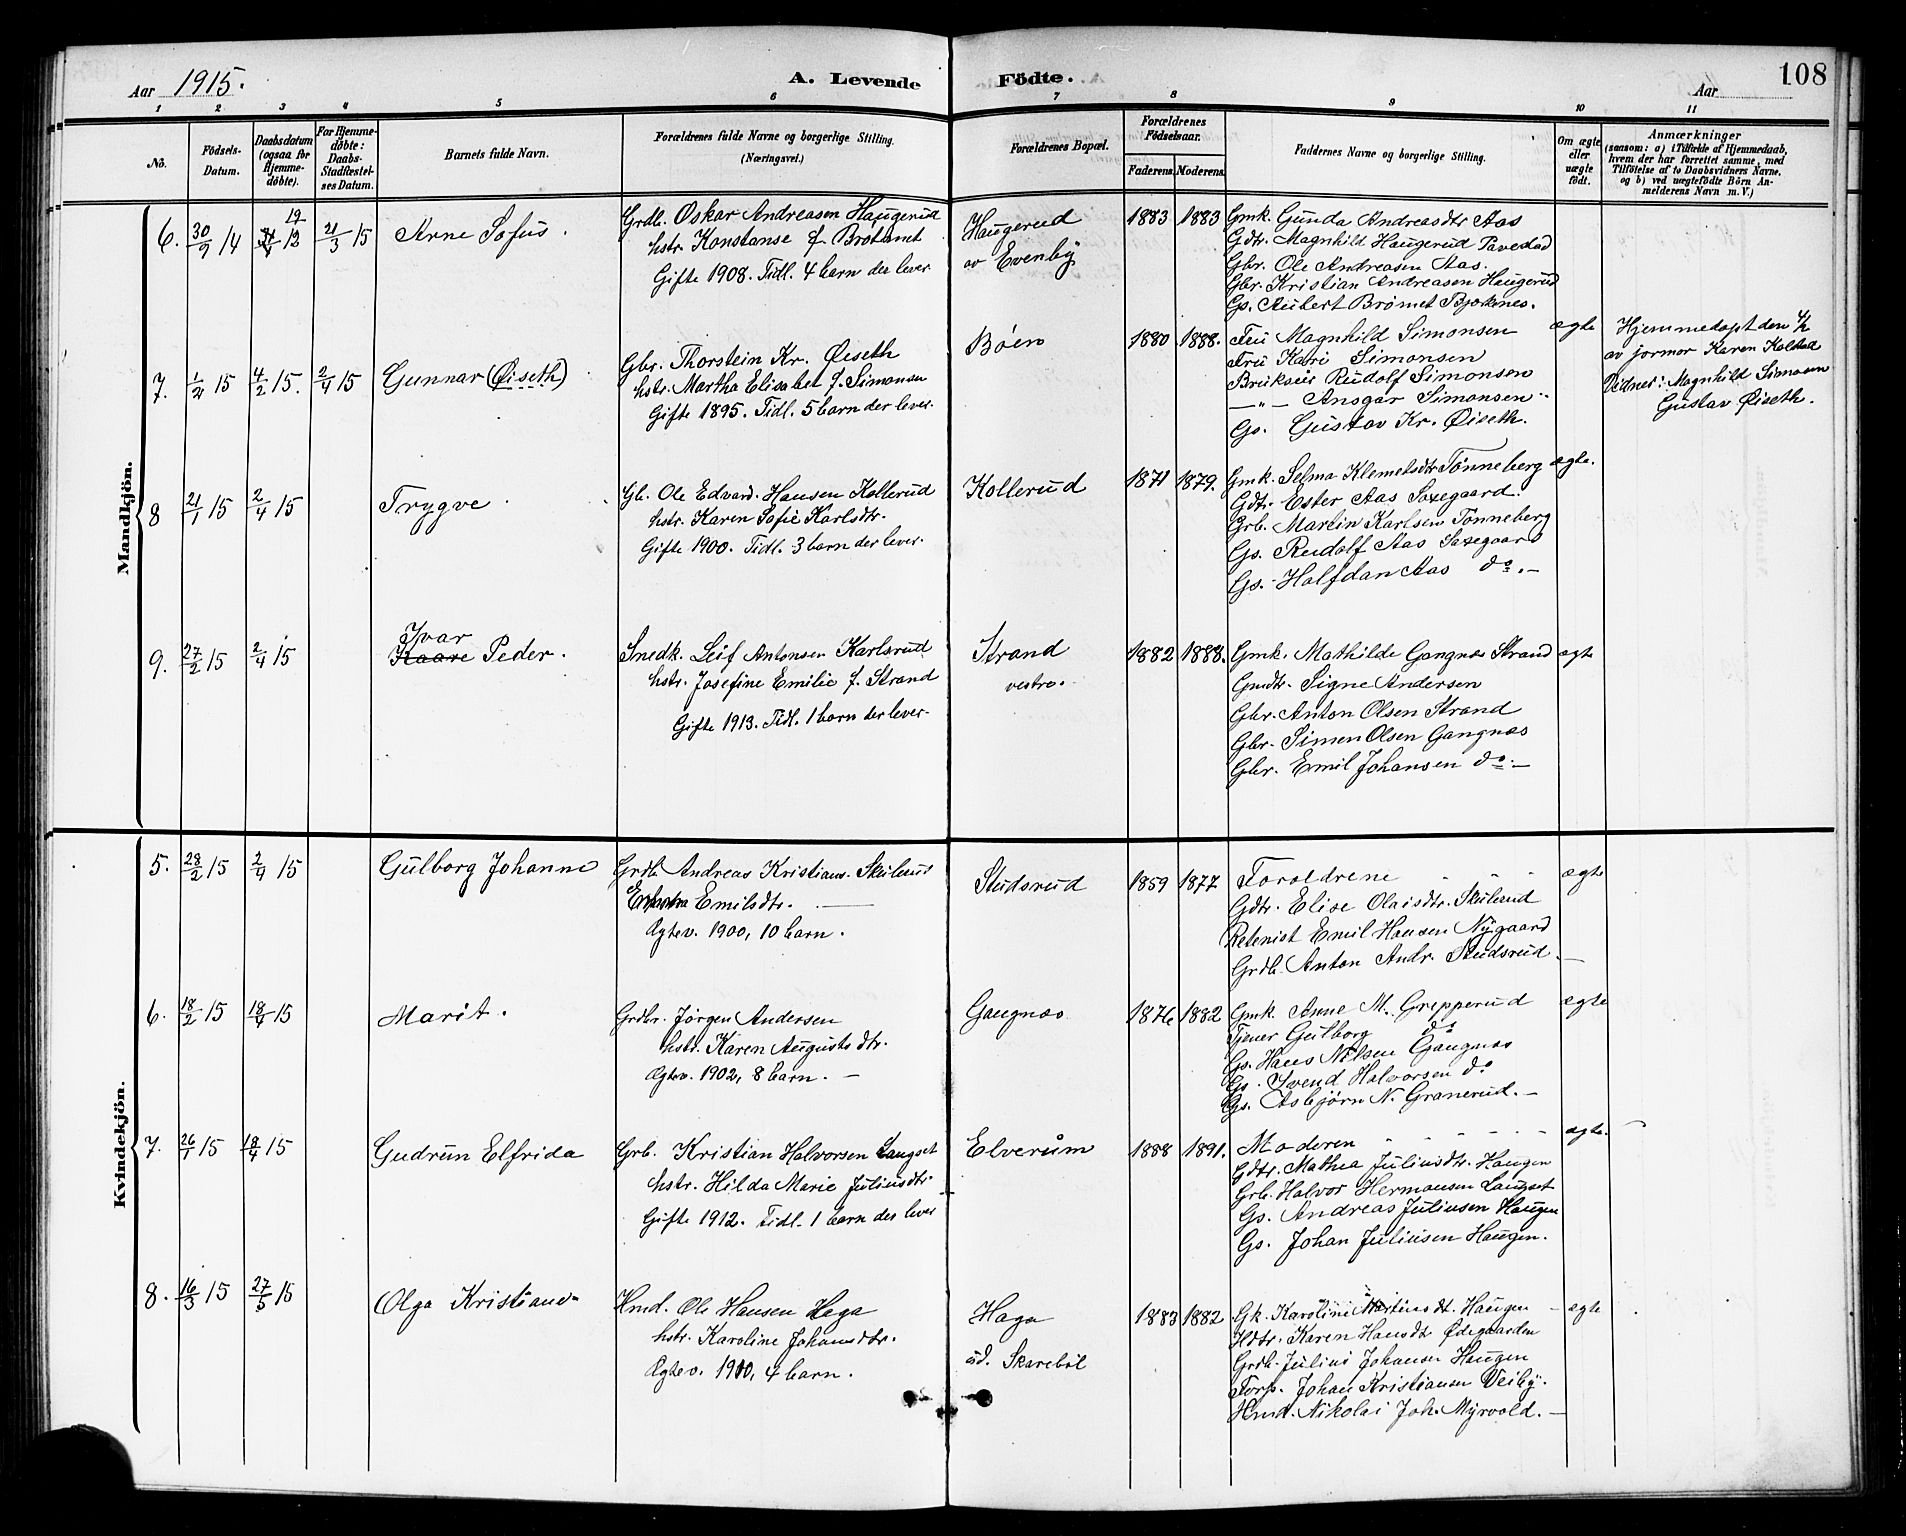 Aar 1915.
A. Levende Födte.
Aar
108
1 2 3 4 5 6 7 8 9 10 11
No.
Födsels-Datum.
Daabsdatum (ogsaa for Hjemme-döbte).
For Hjemme-döbte: Daabs-Stadfæstel-ses Datum.
Barnets fulde Navn.
Forældrenes fulde Navne og borgerlige Stilling.
(Næringsvei.)
Forældrenes Bopæl.
Forældrenes Födselsaar.
Faderens. Moderens.
Faddernes Navne og borgerlige Stilling.
Om ægte eller uægte födt.
Anmærkninger
(saasom: a) i Tilfælde af Hjemmedaab,
hvem der har forrettet samme, med
Tilföielse af to Daabsvidners Navne,
og b) ved uægtefödte Börn An-
melderens Navn m. V.)
Mandkjön.
6. 30/9 14 19/12 21/3 15
Arne Sofus.
Grdb. Oskar Andreasen Haugerud
hstr. Konstanse f. Brotemet
Gifte 1908. Tidl. 4 barn der lever
Haugerud
av Evenby
1883 1883
Gmk. Gunda Andreasdtr Aas
Gdtr. Magnhild Haugerud Pavestad
Gbr. Ole Andreasen Aas.
Gbr. Kristian Andreasen Haugerud
Gs. Aubert Brømet Bjørknes.
7. 1/2 15 4/2 15. 2/4 15
Gunnar (Øiseth)
Gbr. Thorstein Kr. Øiseth
hstr. Martha Elisabet f. Simonsen
Gifte 1895. Tidl. 5 barn der lever.
Bøen
1880 1888.
Fru Magnhild Simonsen
Frü Kari Simonsen
Brukseier Rudolf Simonsen
—"— Ansgar Simonsen
Gs. Gustav Kr. Øiseth.
ægte
Hjemmedøpt den 4/2
av jormor Karen Kolstad
Vidner: Magnhild Simonsen
Gustav Øiseth.
8 21/1 15 2/4 15
Trygve
Gb. Ole Edvard Hansen Kollerud
hstr. Karen Sofie Karlsdtr.
Gifte 1900. Tidl. 3 barn der lever.
Kollerud
1871 1879.
Gmk. Selma Klemetsdtr Tønneberg
Gdtr. Ester Aas Saxegaard.
Grb. Martin Karlsen Tønneberg
Gs. Rudolf Aas Saxegaard
Gs. Halfdan Aas do. —
ægte.
9. 27/2 15 2/4 15
Ivar
Kaare Peder.
Snedk. Leif Antonsen Karlsrud
hstr. Josefine Emilie f. Strand
Gifte 1913. Tidl. 1 barn der lever
Strand
vestre.
1882 1888.
Gmk. Mathilde Gangnæs Strand
Gmdtr. Signe Andersen
Gbr. Anton Olsen Strand
Gbr. Simen Olsen Gangnæs
Gbr. Emil Johansen do. —
ægte
Kvindekjön.
5. 28/2 15 2/4 15
Gulborg Johanne
Grdb. Andreas Kristians. Skulerud
Emilsdtr.
Ægtev. 1900, 10 barn.
Studsrud
1859 1877
Foreldrene
Gdtr. Elise Olaisdtr. Skulerud
Repenist Emil Hansen Nygaard
Grdb. Anton Andr. Studsrud —
ægte
6. 18/2 15 18/4 15
Marit.
Grdbr. Jørgen Andersen
hstr. Karen Augustsdtr.
Ægtev. 1902, 8 barn. —
Gangnæs
1876 1882
Gmk Anne M. Grepperud
Tjener Gulborg do
Gs. Hans Nilsen Gangnæs
Gs. Svend Halvorsen do
Gs. Asbjørn N. Granerud. —
ægte
7. 26/1 15 18/4 15
Gudrun Elfrida
Grb. Kristian Halvorsen Langset
hstr. Hilda Marie Juliusdtr.
Gifte 1912. Tidl. 1 barn der lever
Elverum
1888 1891.
Moderen
Gdtr. Mathea Juliusdtr. Haugen
Grb. Halvor Hermansen Langset
Gs. Andreas Juliusen Haugen
Gs. Johan Juliusen Haugen.
ægte.
8. 16/3 15 27/5 15
Olga Kristiane
Hmd. Ole Hansen Haga
hstr. Karoline Johansdtr.
Ægtev. 1900, 4 barn.
Haga
ud. Skarebøl
1883 1882
Gk. Karoline Martinsdt. Haugen
Hdtr. Karen Hansdt Ødegaarden
Grdb. Julius Johansen Haugen
Forp. Johan Kristiansen Veiby.
Hmd. Nikolai Joh. Myrvold. —
ægte